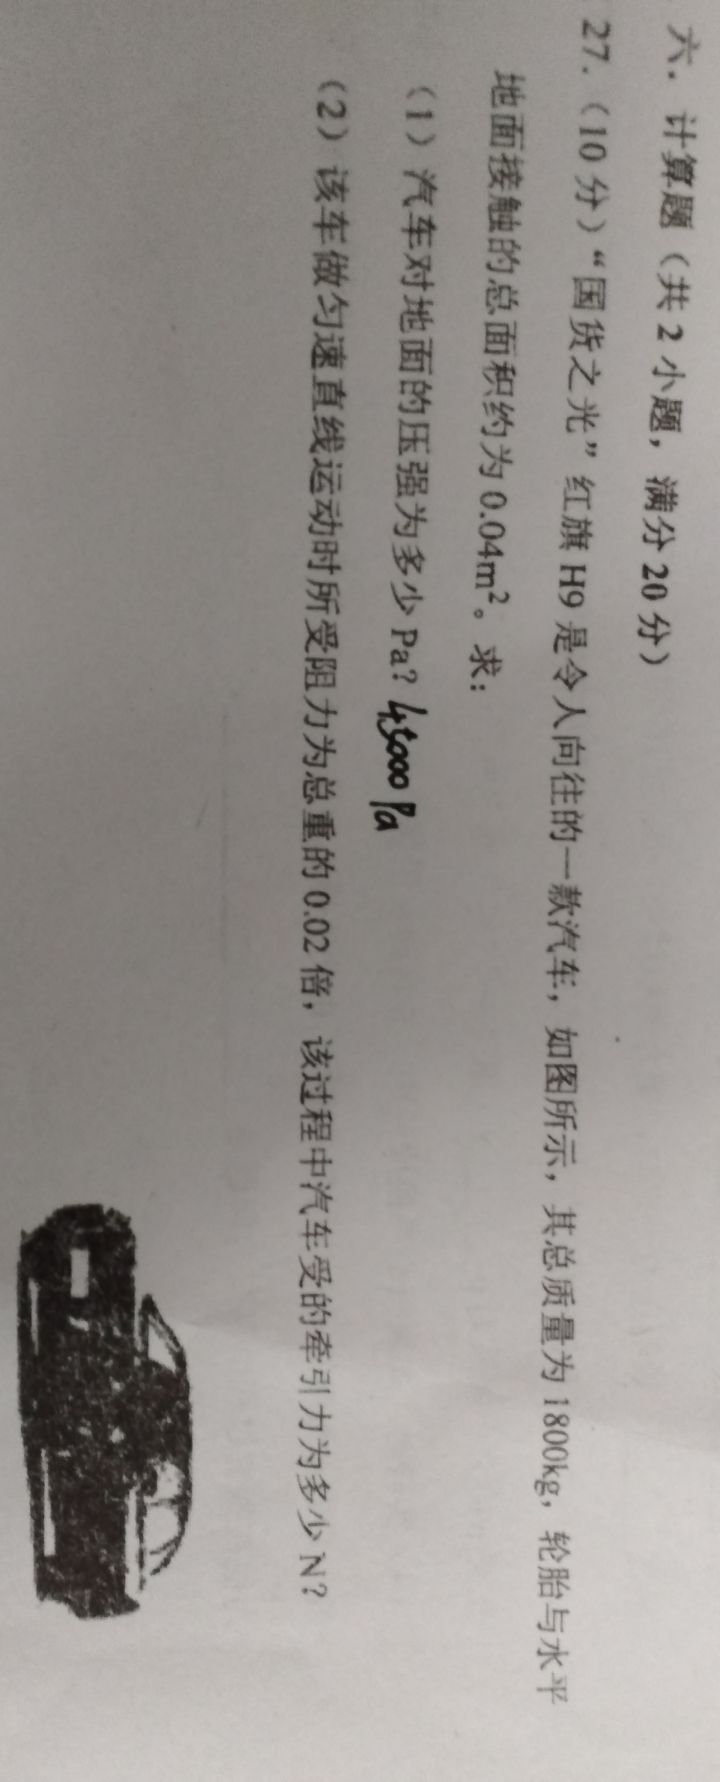 六．计算题（共 2 小题，满分 20 分）
27.（10 分）“国货之光”红旗 H9 是令人向往的一款汽车，如图所示，其总质量为 1800kg，轮胎与水平
地面接触的总面积约为 0.04m²。求：
（1）汽车对地面的压强为多少 Pa？45000 Pa
（2）该车做匀速直线运动时所受阻力为总重的 0.02 倍，该过程中汽车受的牵引力为多少 N？